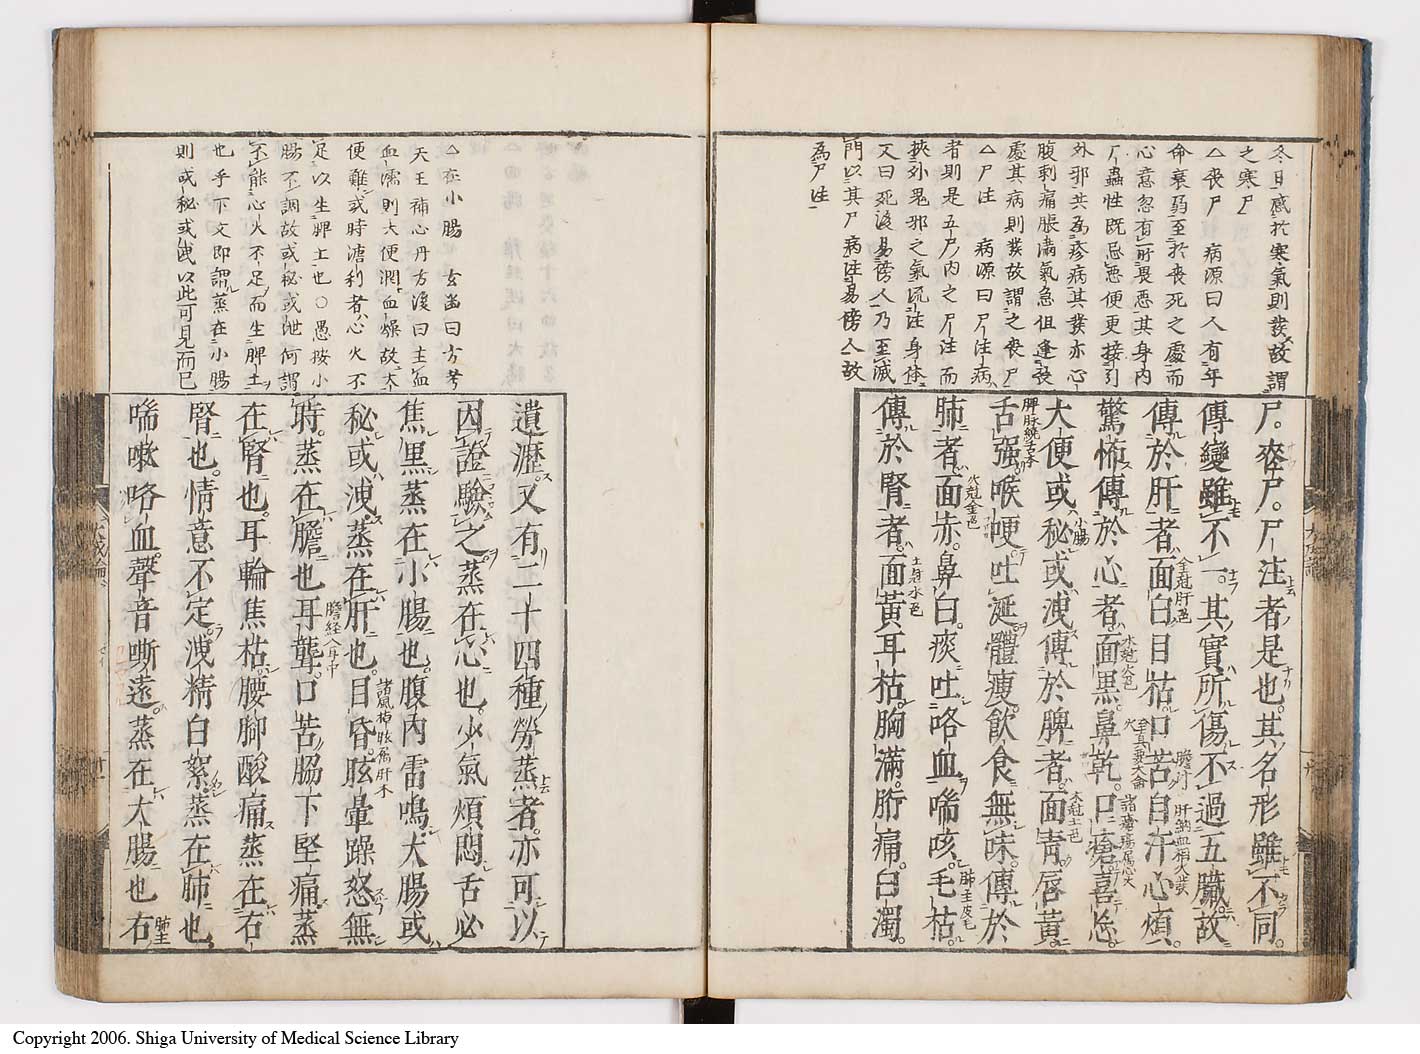 冬日感於寒氣則發故謂
之寒尸
△喪尸　病源曰人有年
命衰弱至於喪死之處而
心意忽有所畏惡其身内
尸蟲性既忌惡便更接引
外邪共為疹病其發亦心
腹刺痛脹滿氣急但逢喪
處其病則發故謂之喪尸
△尸注　病源曰尸注病
者則是五尸内之尸注而
挾外鬼邪之氣流注身体
又曰死後易傍人乃至滅
門以其尸病注易傍人故
為尸注
尸。喪尸。尸注者是也。其名形雖不同。
傳變雖不一。其實所傷不過五臟故
傳於肝者面白目枯口苦自汗心煩。
驚怖傳於心者面黒鼻乾。口瘡喜忘。
大便或秘或洩傳於脾者。面青唇黄。
舌强喉哽吐涎體瘦飲食無味傳於
肺者面赤。鼻白。痰吐咯血喘咳。毛枯。
傳於腎者。面黄耳枯胸滿。胻痛。白濁。
金尅肝色
膽汁
肝納血相火發
水尅火色
諸瘡瘍属心火
小腸
木尅土色
脾脉繞舌本
火尅金色
肺主皮毛
土尅水色
△在小腸　玄幽曰方考
天王補心丹方後曰主血
血濡則大便潤血燥故大
便難或時溏利者心火不
足以生脾土也○愚按小
腸不調故或秘或泄何謂
不能心火不足而生脾土
也乎下文即謂蒸在小腸
則或秘或洩以此可見而已
遺瀝。又有二十四種勞蒸者。亦可以
因證驗之。蒸在心也少氣煩悶舌必
焦黒蒸在小腸也。腹内雷鳴。大腸或
秘或洩。蒸在肝也。目昏。眩暈躁怒無
時。蒸在膽也耳聾。口苦脇下堅痛蒸
在腎也。耳輪焦枯。腰脚酸痛蒸在右
腎也。情意不定洩精白絮。蒸在肺也
喘嗽咯血。聲音嘶遠。蒸在大腸也右
諸風掉眩属肝木
膽経入耳中
肺主
Copyright 2006. Shiga University of Medical Science Library